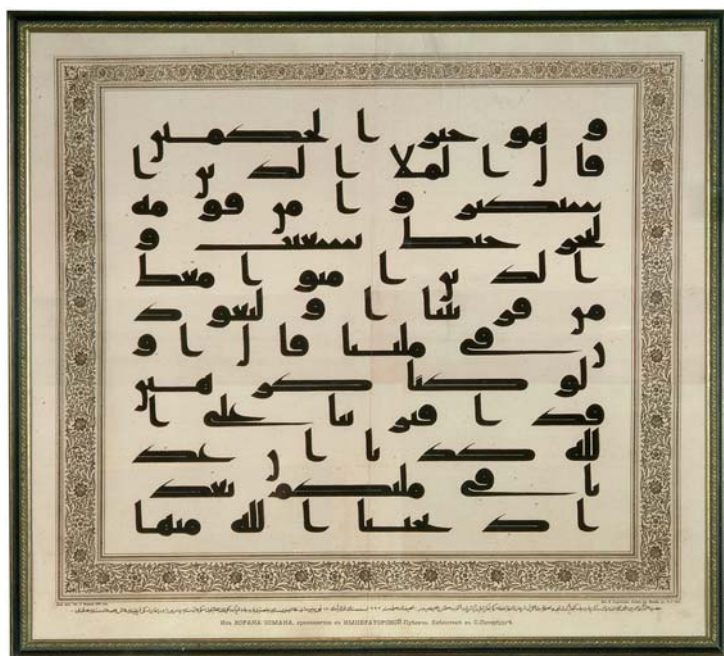 وهو خير الحكمين
قال الملا الذين ا
ستكبروا من قومه
لنخرجنك يشعيب و
الذين امنوا معك
من قريتنا او لتعود
ن في ملتنا قال او
لو كنا كرهين
قد افترينا على ا
لله كذبا ان عد
نا في ملتكم بعد
اذ نجينا الله منها
Изъ КОРАНА ОСМАНА, хранящагося въ ИМПЕРАТОРСКОЙ Публичн. Библіотекѣ въ С.Петербургѣ